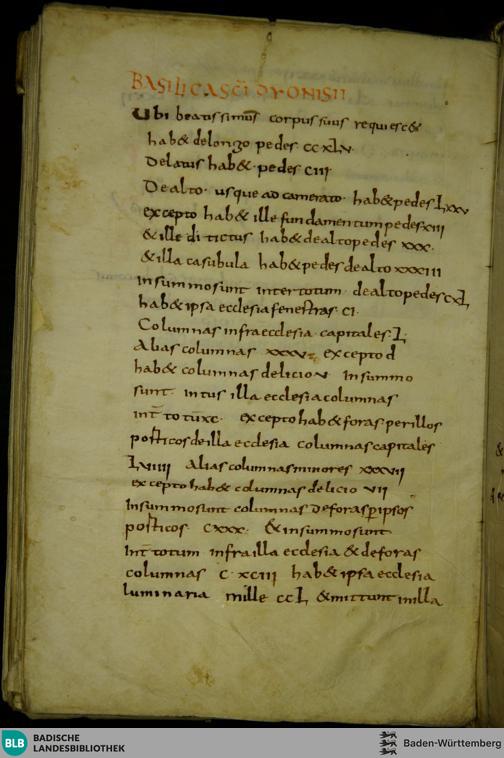 BASILICASC̄I DYONISII
Ubi beatissimus corpus suus requiesc&
hab& delongo pedes ccxlv
Delatus hab& pedes ciii
Dealto usque ad camerato hab& pedes Lxxv
excepto hab& ille fundamentum pedes xiii
& ille ditictus hab& dealto pedes xxx.
& illa casubula hab& pedes dealto xxxiii
Insummosunt intertotum dealto pedes CxL
hab& ipsa ecclesia fenestras. ci.
Columnas infra ecclesia capitales. L
Alias columnas xxxv excepto d
hab& columnas delicio v Insummo
sunt intus illa ecclesia columnas
int̄ totū xc. excepto hab& foras perillos
posticos deilla ecclesia columnas capitales
Lviiii Alias columnas minores xxxvii
excepto hab& columnas delicio vii
Insummosunt columnas deforas p̱ ipsos
posticos cxxx. & insummosunt
Int̄ totum infra illa ecclesia & deforas
columnas c.xciii hab& ipsa ecclesia
luminaria mille ccL & mittunt inilla
BLB BADISCHE
LANDESBIBLIOTHEK
Baden-Württemberg